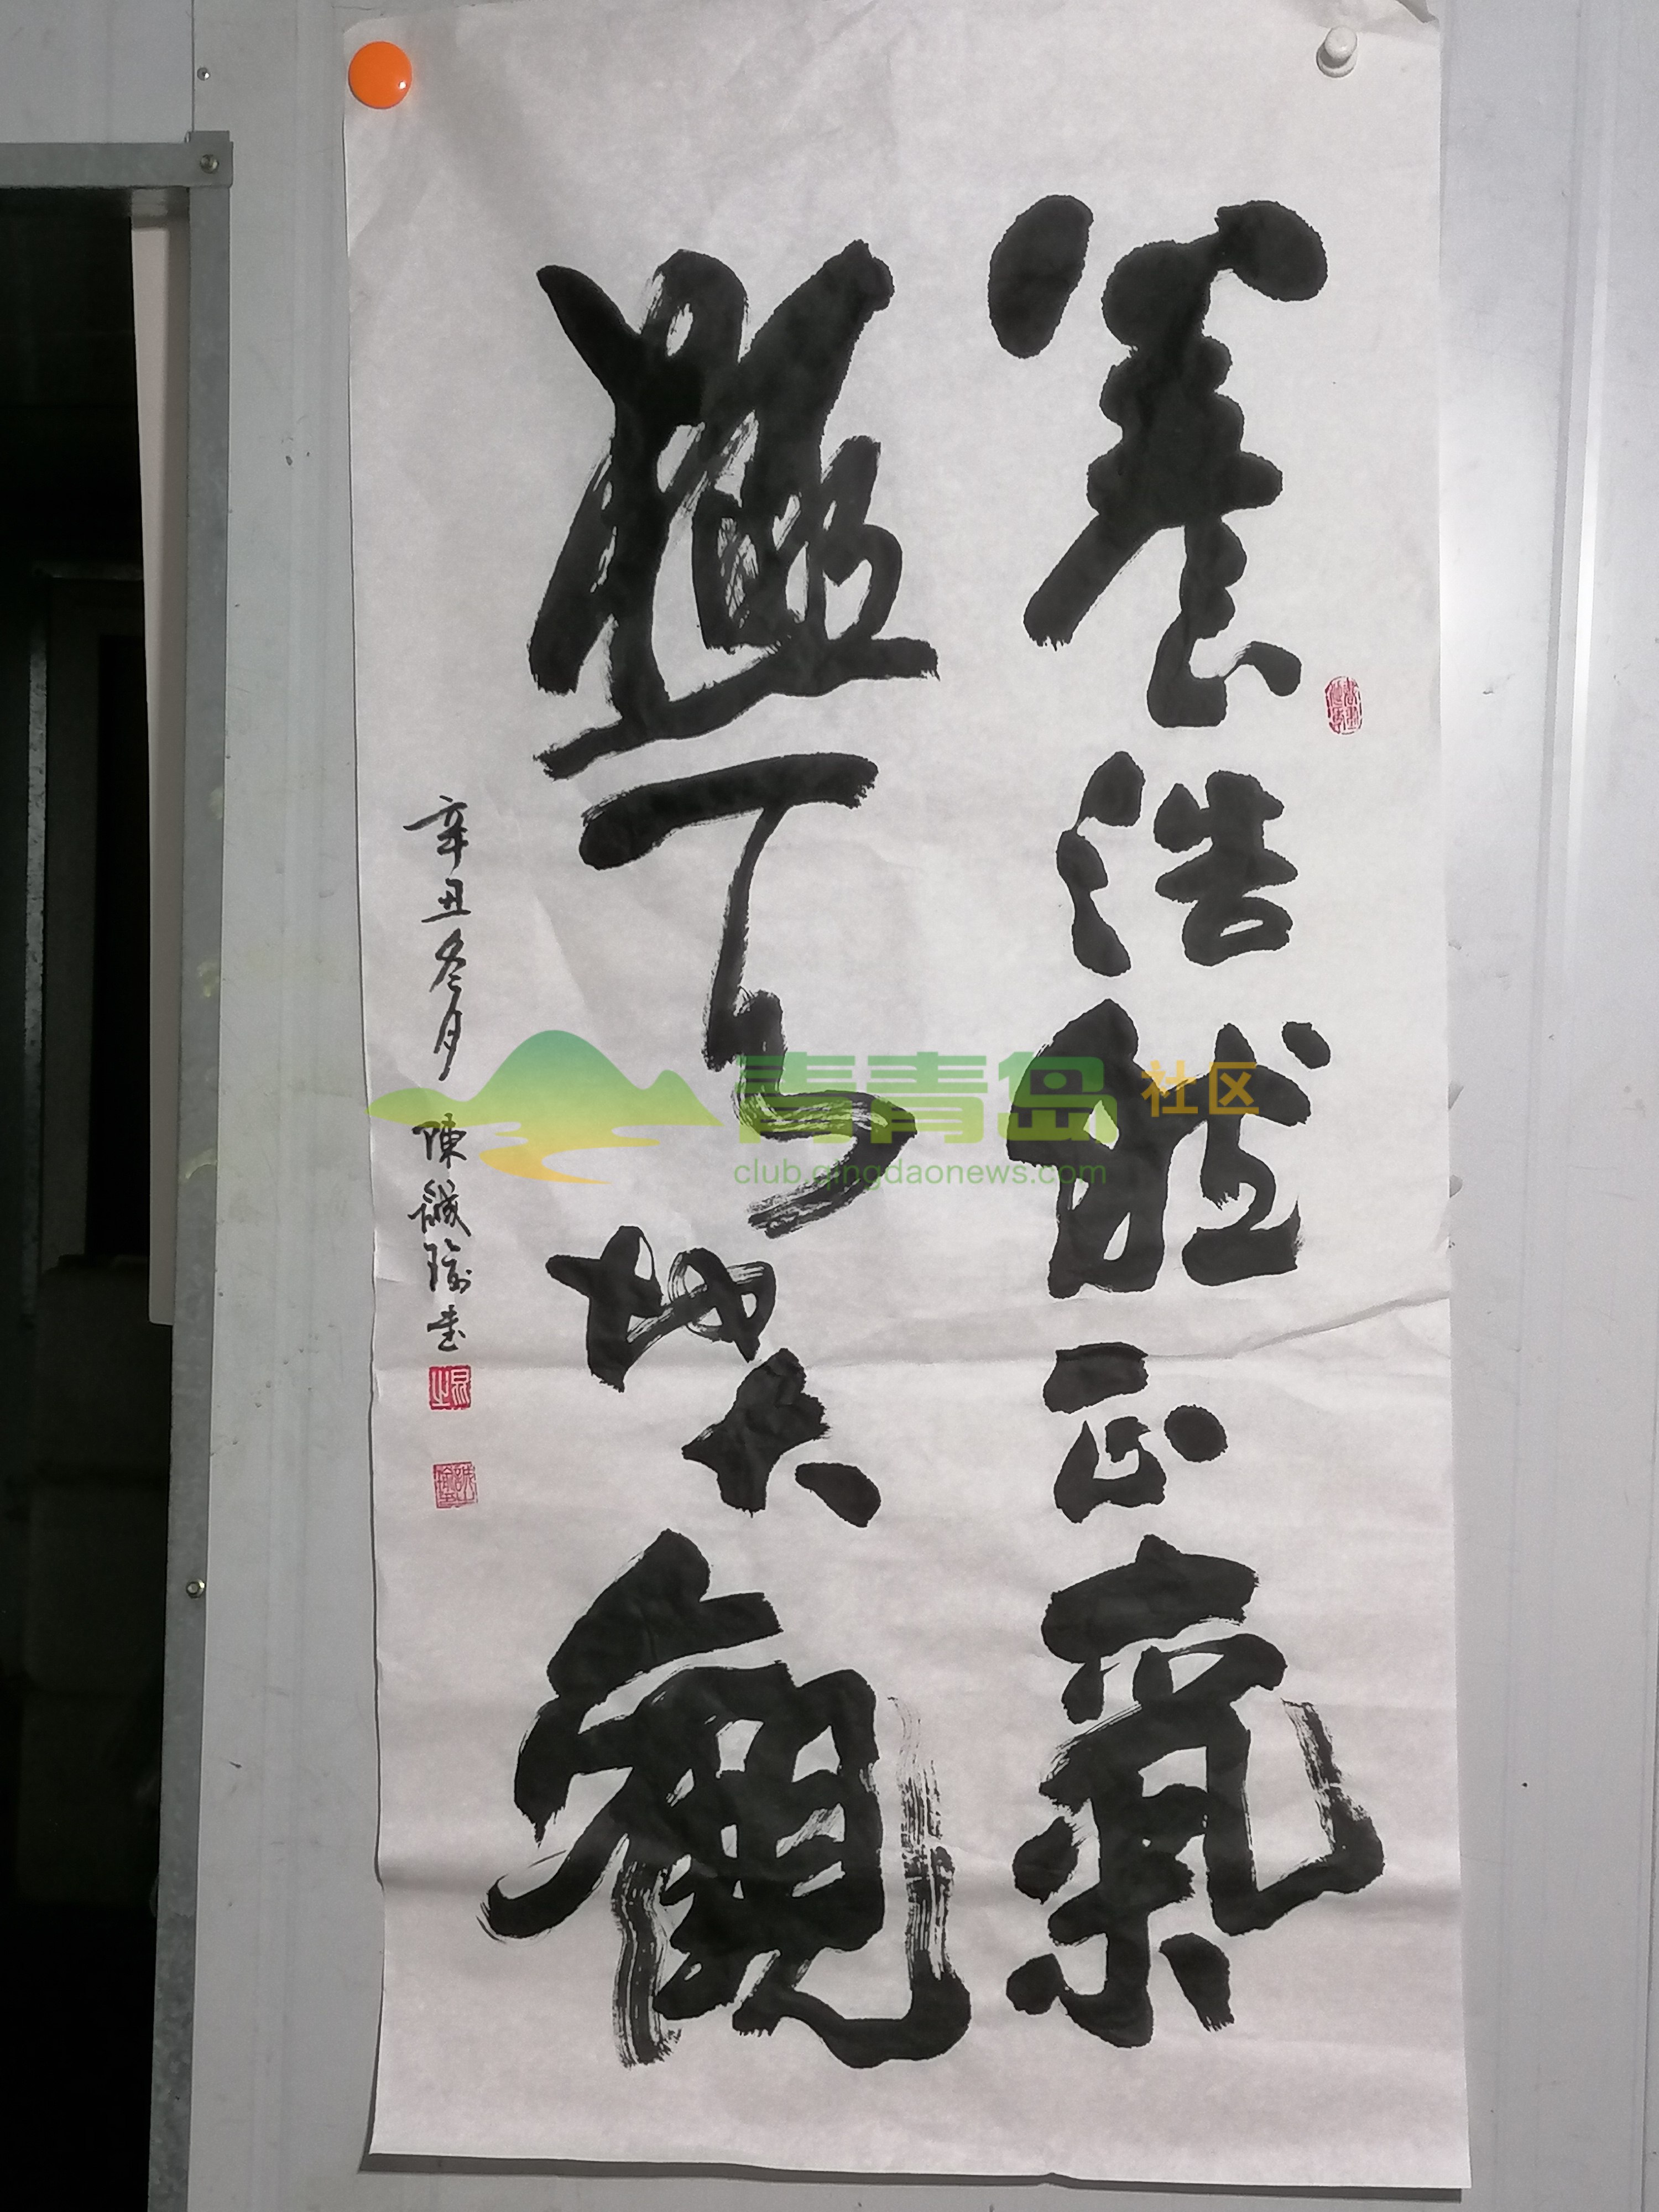 養浩然正氣
極天地大觀
辛丑冬月 陳誠瑜書
青青岛 社区
club.qingdaonews.com